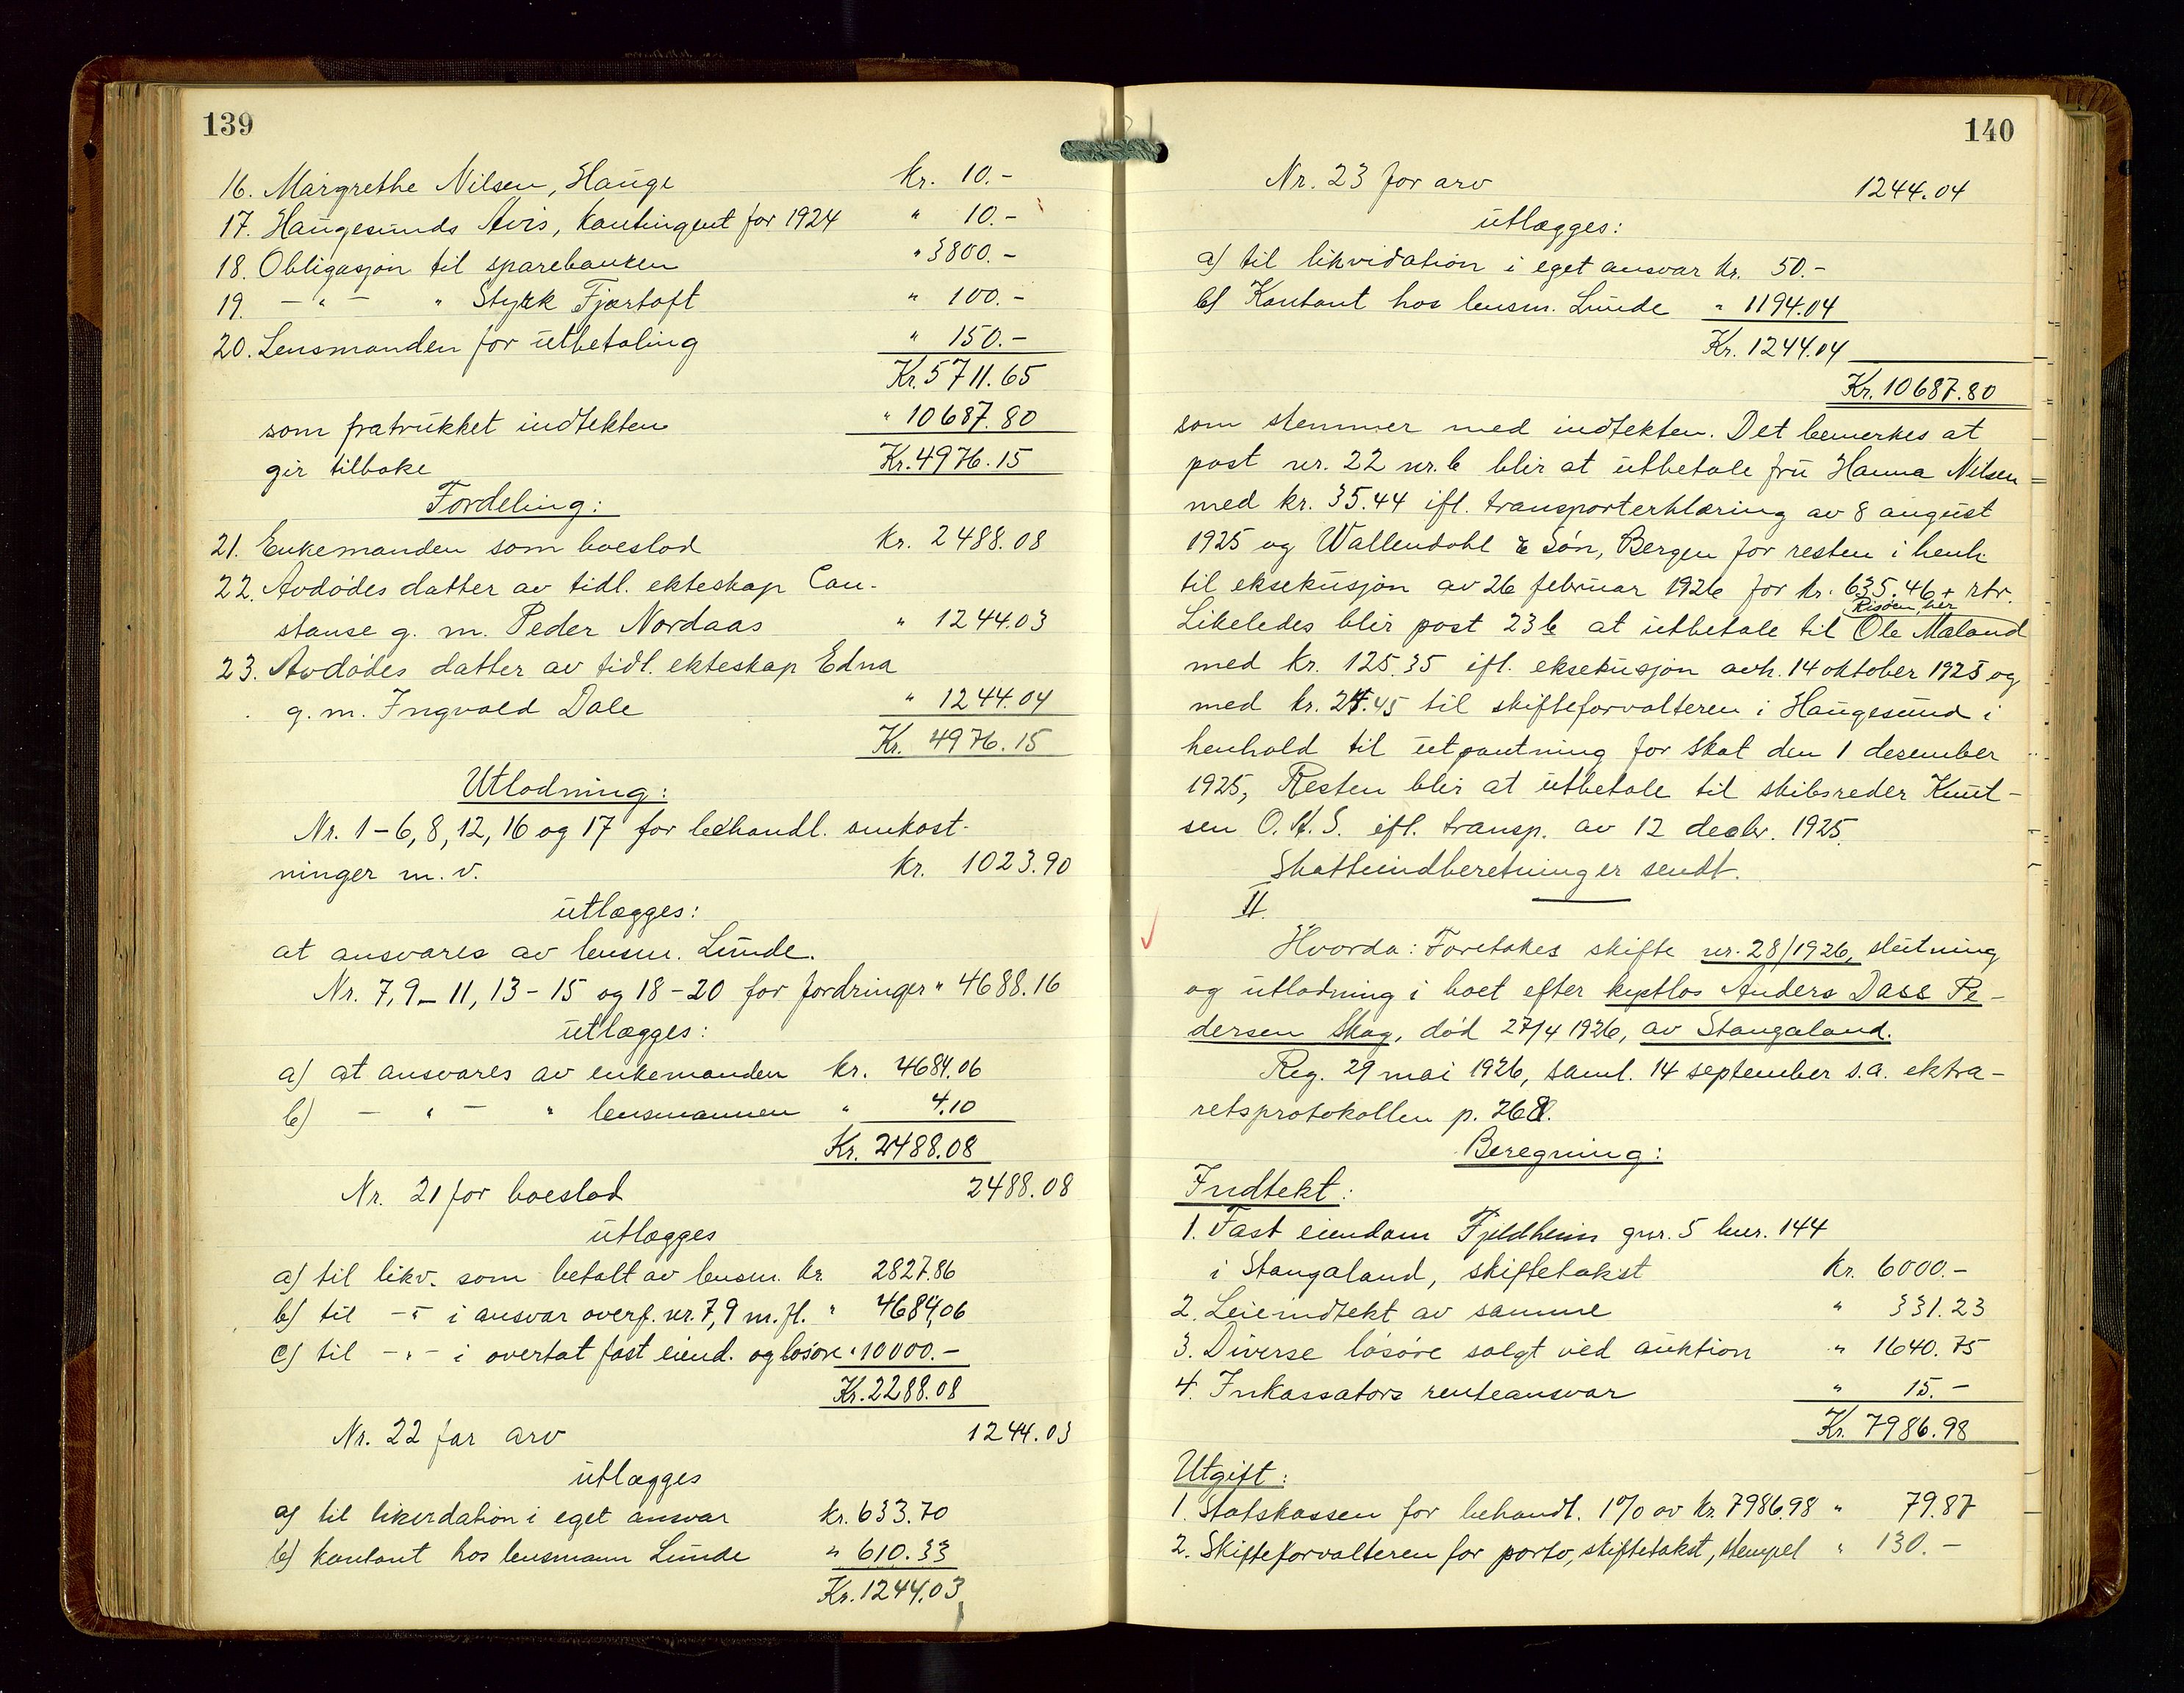 139
16. Margrethe Nilsen, Hauge kr. 10.-
17. Haugesunds Avis, kontingent for 1924 " 10.-
18. Obligasjon til sparebanken " 3800.-
19. - " - " Styrk Fjærtoft " 100.-
20. Lensmanden for utbetaling " 150.-
Kr. 5711.65
som fratrukket indtekten " 10687.80
gir tilbake Kr. 4976.15
Fordeling:
21. Enkemanden som boeslod kr. 2488.08
22. Avdødes datter av tidl. ekteskap Con-
stanse g. m. Peder Nordaas " 1244.03
23. Avdødes datter av tidl. ekteskap Edna
g. m. Ingvald Dale " 1244.04
Kr. 4976.15
Utlodning:
Nr. 1-6, 8, 12, 16 og 17 for behandl. omkost-
ninger m. v. kr. 1023.90
utlægges:
at ansvares av lensm. Lunde.
Nr. 7, 9-11, 13-15 og 18-20 for fordringer " 4688.16
utlægges:
a) at ansvares av enkemanden kr. 4684.06
b) - " - " lensmannen " 4.10
Kr. 2488.08
Nr. 21 for boeslod 2488.08
utlægges
a) til likv. som betalt av lensm. kr. 2827.86
b) til - " - i ansvar overf. nr. 7, 9 m. fl. " 4684,06
c) til - " - i overtat fast eiend. og løsøre " 10000.-
Kr. 2288.08
Nr. 22 for arv 1244.03
utlægges
a) til likvidation i eget ansvar kr. 633.70
b) kontant hos lensmann Lunde " 610.33
Kr. 1244.03
140
Nr. 23 for arv 1244.04
utlægges:
a) til likvidation i eget ansvar kr. 50.-
b) Kontant hos lensm. Lunde " 1194.04
Kr. 1244.04
Kr. 10687.80
som stemmer med indtekten. Det bemerkes at
post nr. 22 nr. b blir at utbetale fru Hanna Nilsen
med kr. 35.44 ifl. transporterklæring av 8 august
1925 og Wallendahl & Søn, Bergen for resten i henh.
til eksekusjon av 26 februar 1926 for kr. 635.46 + rtr.
Risøen, her
Likeledes blir post 23 b at utbetale til Ole Maland
med kr. 125.35 ifl. eksekusjon avh. 14 oktober 1925 og
med kr. 24.45 til skifteforvalteren i Haugesund i
henhold til utpantning for skat den 1 desember
1925, Resten blir at utbetale til skibsreder Knut-
sen O. A. S. ifl. transp. av 12 decbr. 1925.
Skatteindberetninger sendt.
II.
Hvorda: Foretokes skifte nr. 28/1926, slutning
og utlodning i boet efter kystlos Anders Dass Pe-
dersen Skog, død 27/4 1926, av Stangaland.
Reg. 29 mai 1926, saml. 14 september s.a. ekstra-
retsprotokollen p. 268.
Beregning:
Indtekt:
1. Fast eiendom Fjeldheim gnr. 5 bnr. 144
i Stangaland, skiftetakst kr. 6000.-
2. Leieindtekt av samme " 331.23
3. Diverse løsøre solgt ved auktion " 1640.75
4. Inkassators renteansvar " 15.-
Kr. 7986.98
Utgift:
1. Statskassen for behandl. 1% av kr. 7986.98 " 79.87
2. Skifteforvalteren for porto, skiftetakst, stempel " 130.-